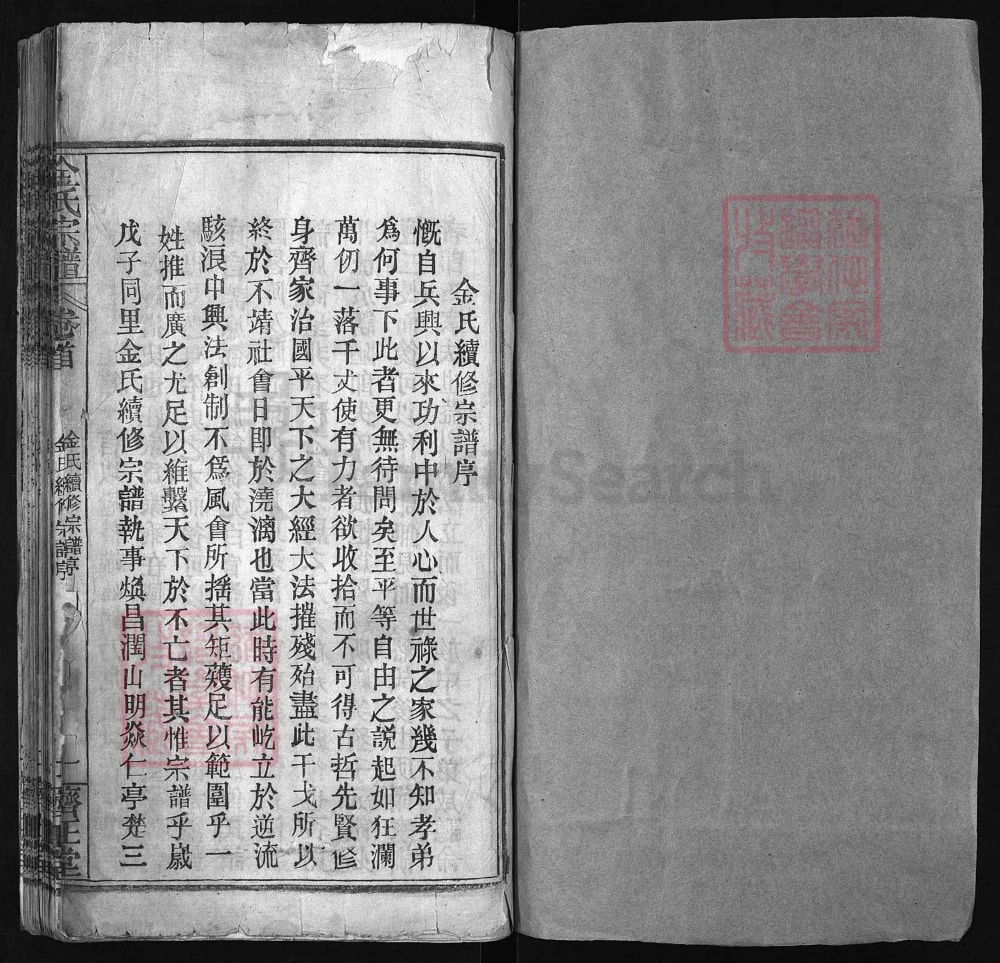 金氏續修宗譜序
慨自兵興以來功利中於人心而世祿之家幾不知孝弟
爲何事下此者更無待問矣至平等自由之説起如狂瀾
萬仞一落千丈使有力者欲收拾而不可得古哲先賢修
身齊家治國平天下之大經大法摧殘殆盡此干戈所以
終於不靖社會日即於澆漓也當此時有能屹立於逆流
駭浪中興法創制不爲風會所揺其矩矱足以範圍乎一
姓推而廣之尤足以維繫天下於不亡者其惟宗譜乎歲
戊子同里金氏續修宗譜執事煥昌潤山明焱仁亭楚三
金氏宗譜
卷首
金氏續修宗譜序
一
濟正堂